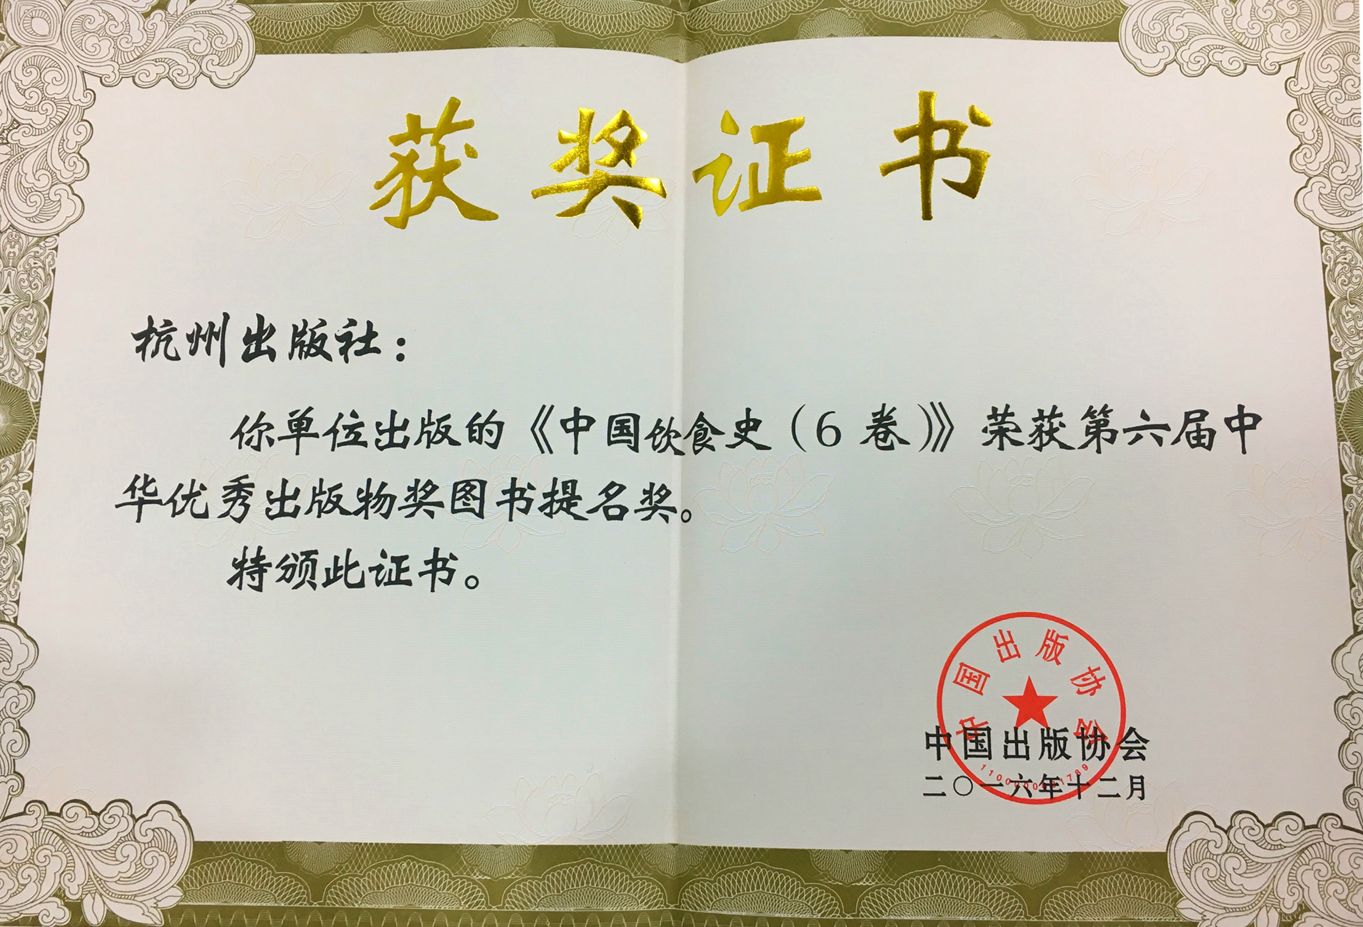 获奖证书
杭州出版社：
你单位出版的《中国饮食史（6 卷）》荣获第六届中
华优秀出版物奖图书提名奖。
特颁此证书。
中国出版协会
中国出版协会
二〇一六年十二月